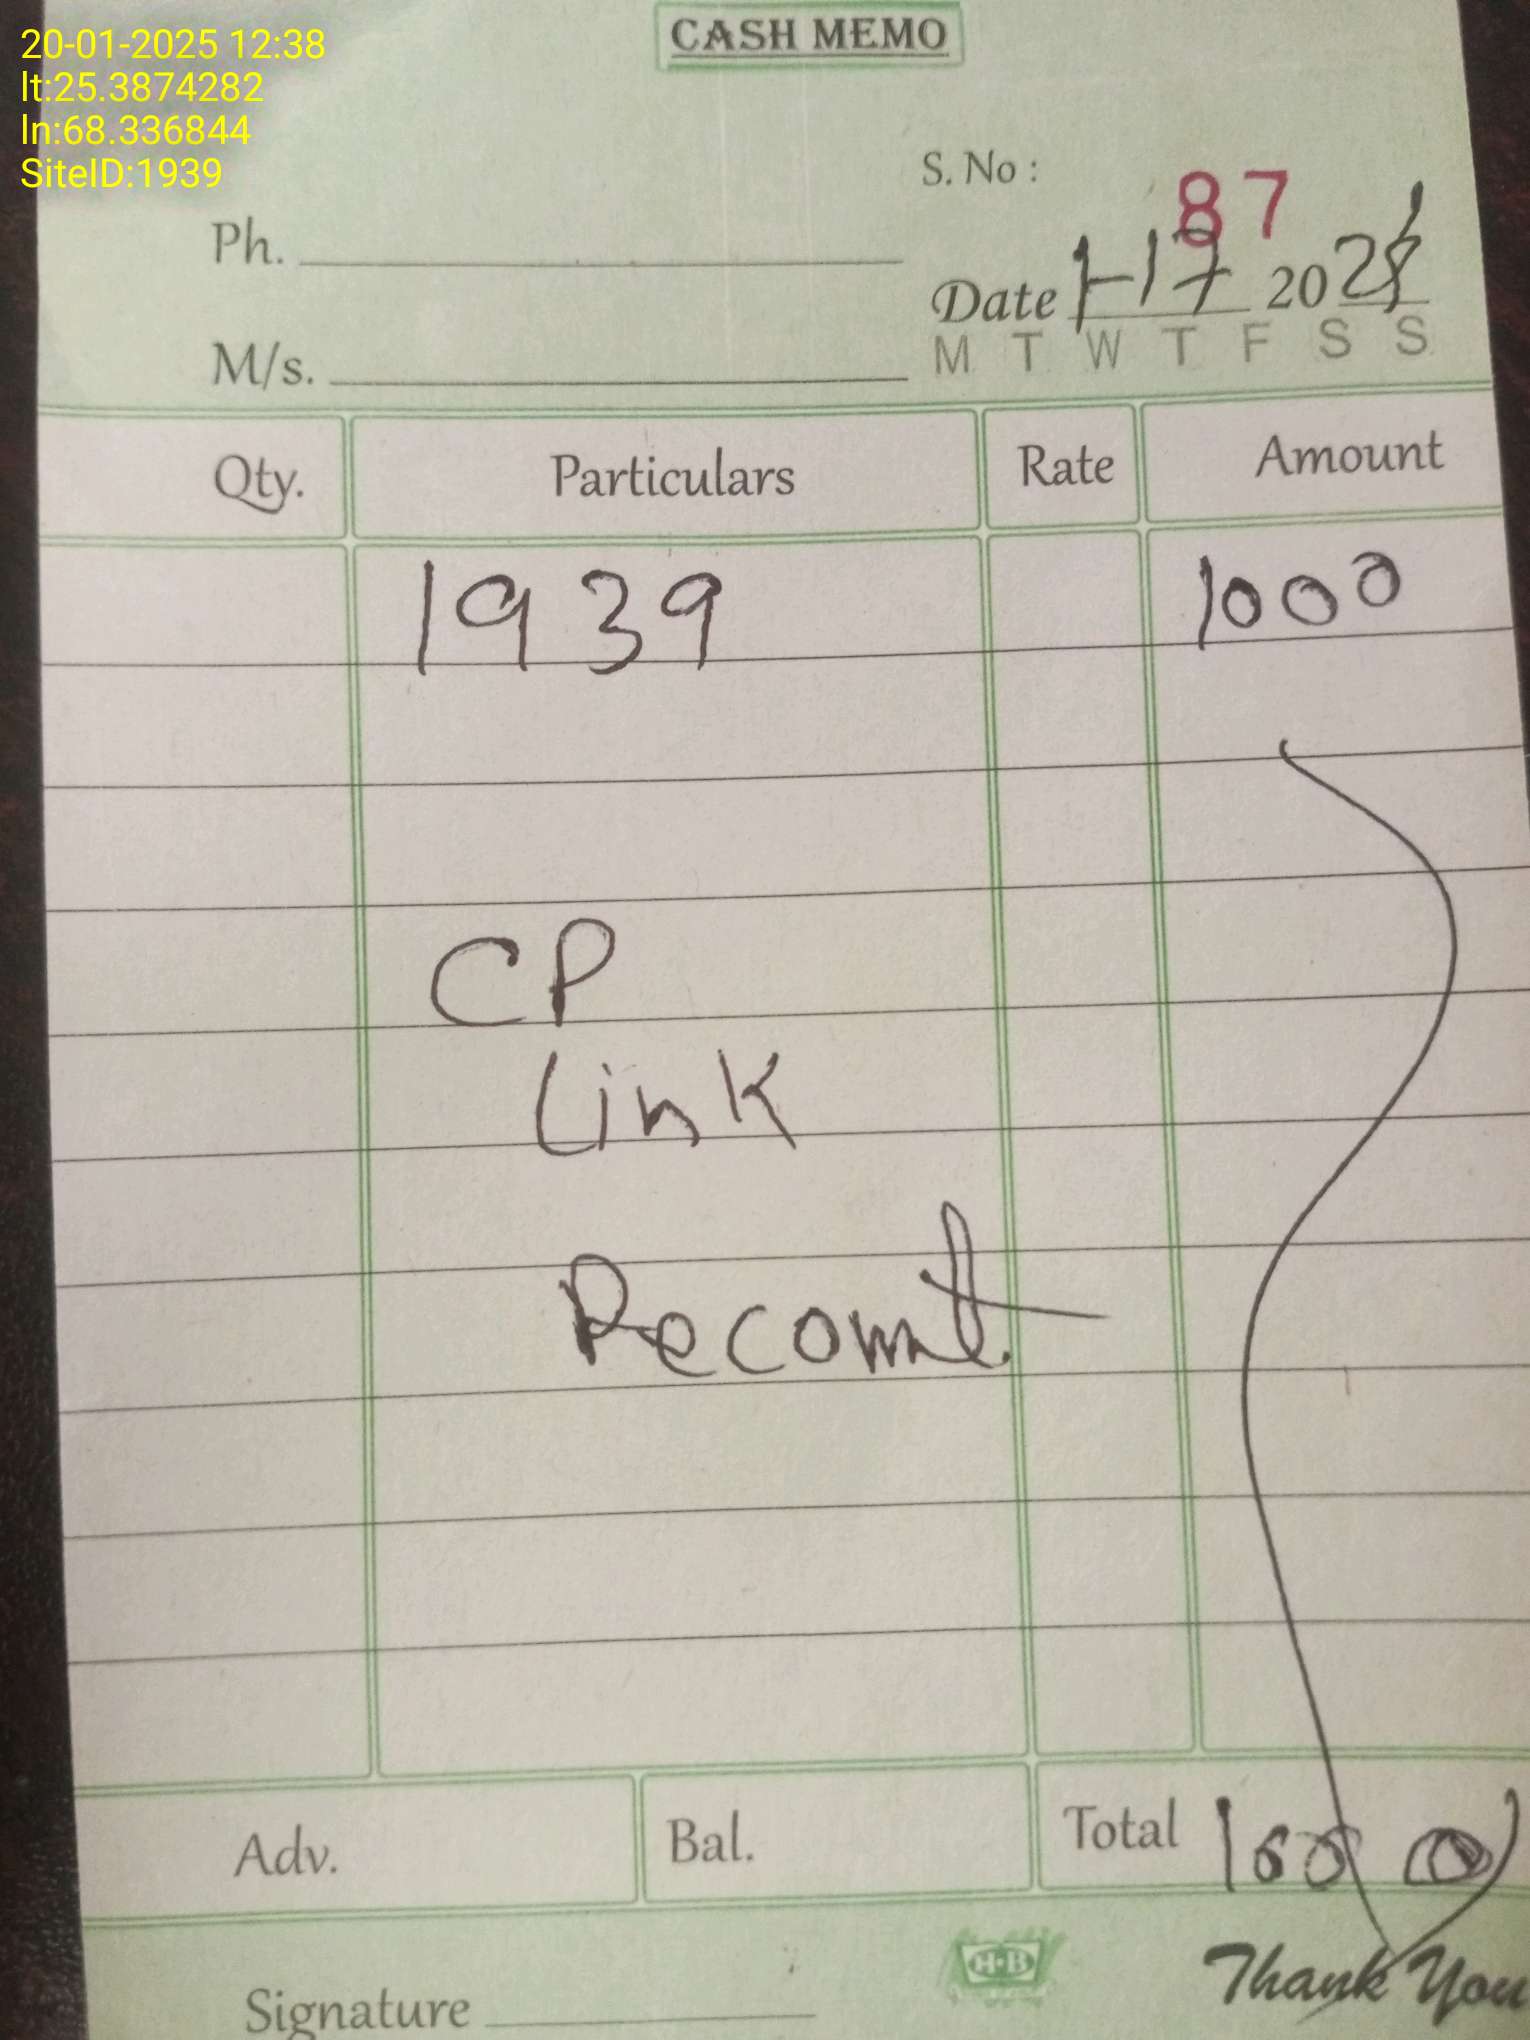 20-01-2025 12:38
lt:25.3874282
ln:68.336844
SiteID:1939
CASH MEMO
S. No :
87
Ph.
Date 1-17 202
M T W T F S S
M/s.
Qty. Particulars Rate Amount
1939 1000
CP
Link
Adv. Bal. Total 1000
H·B
Thank You
Signature